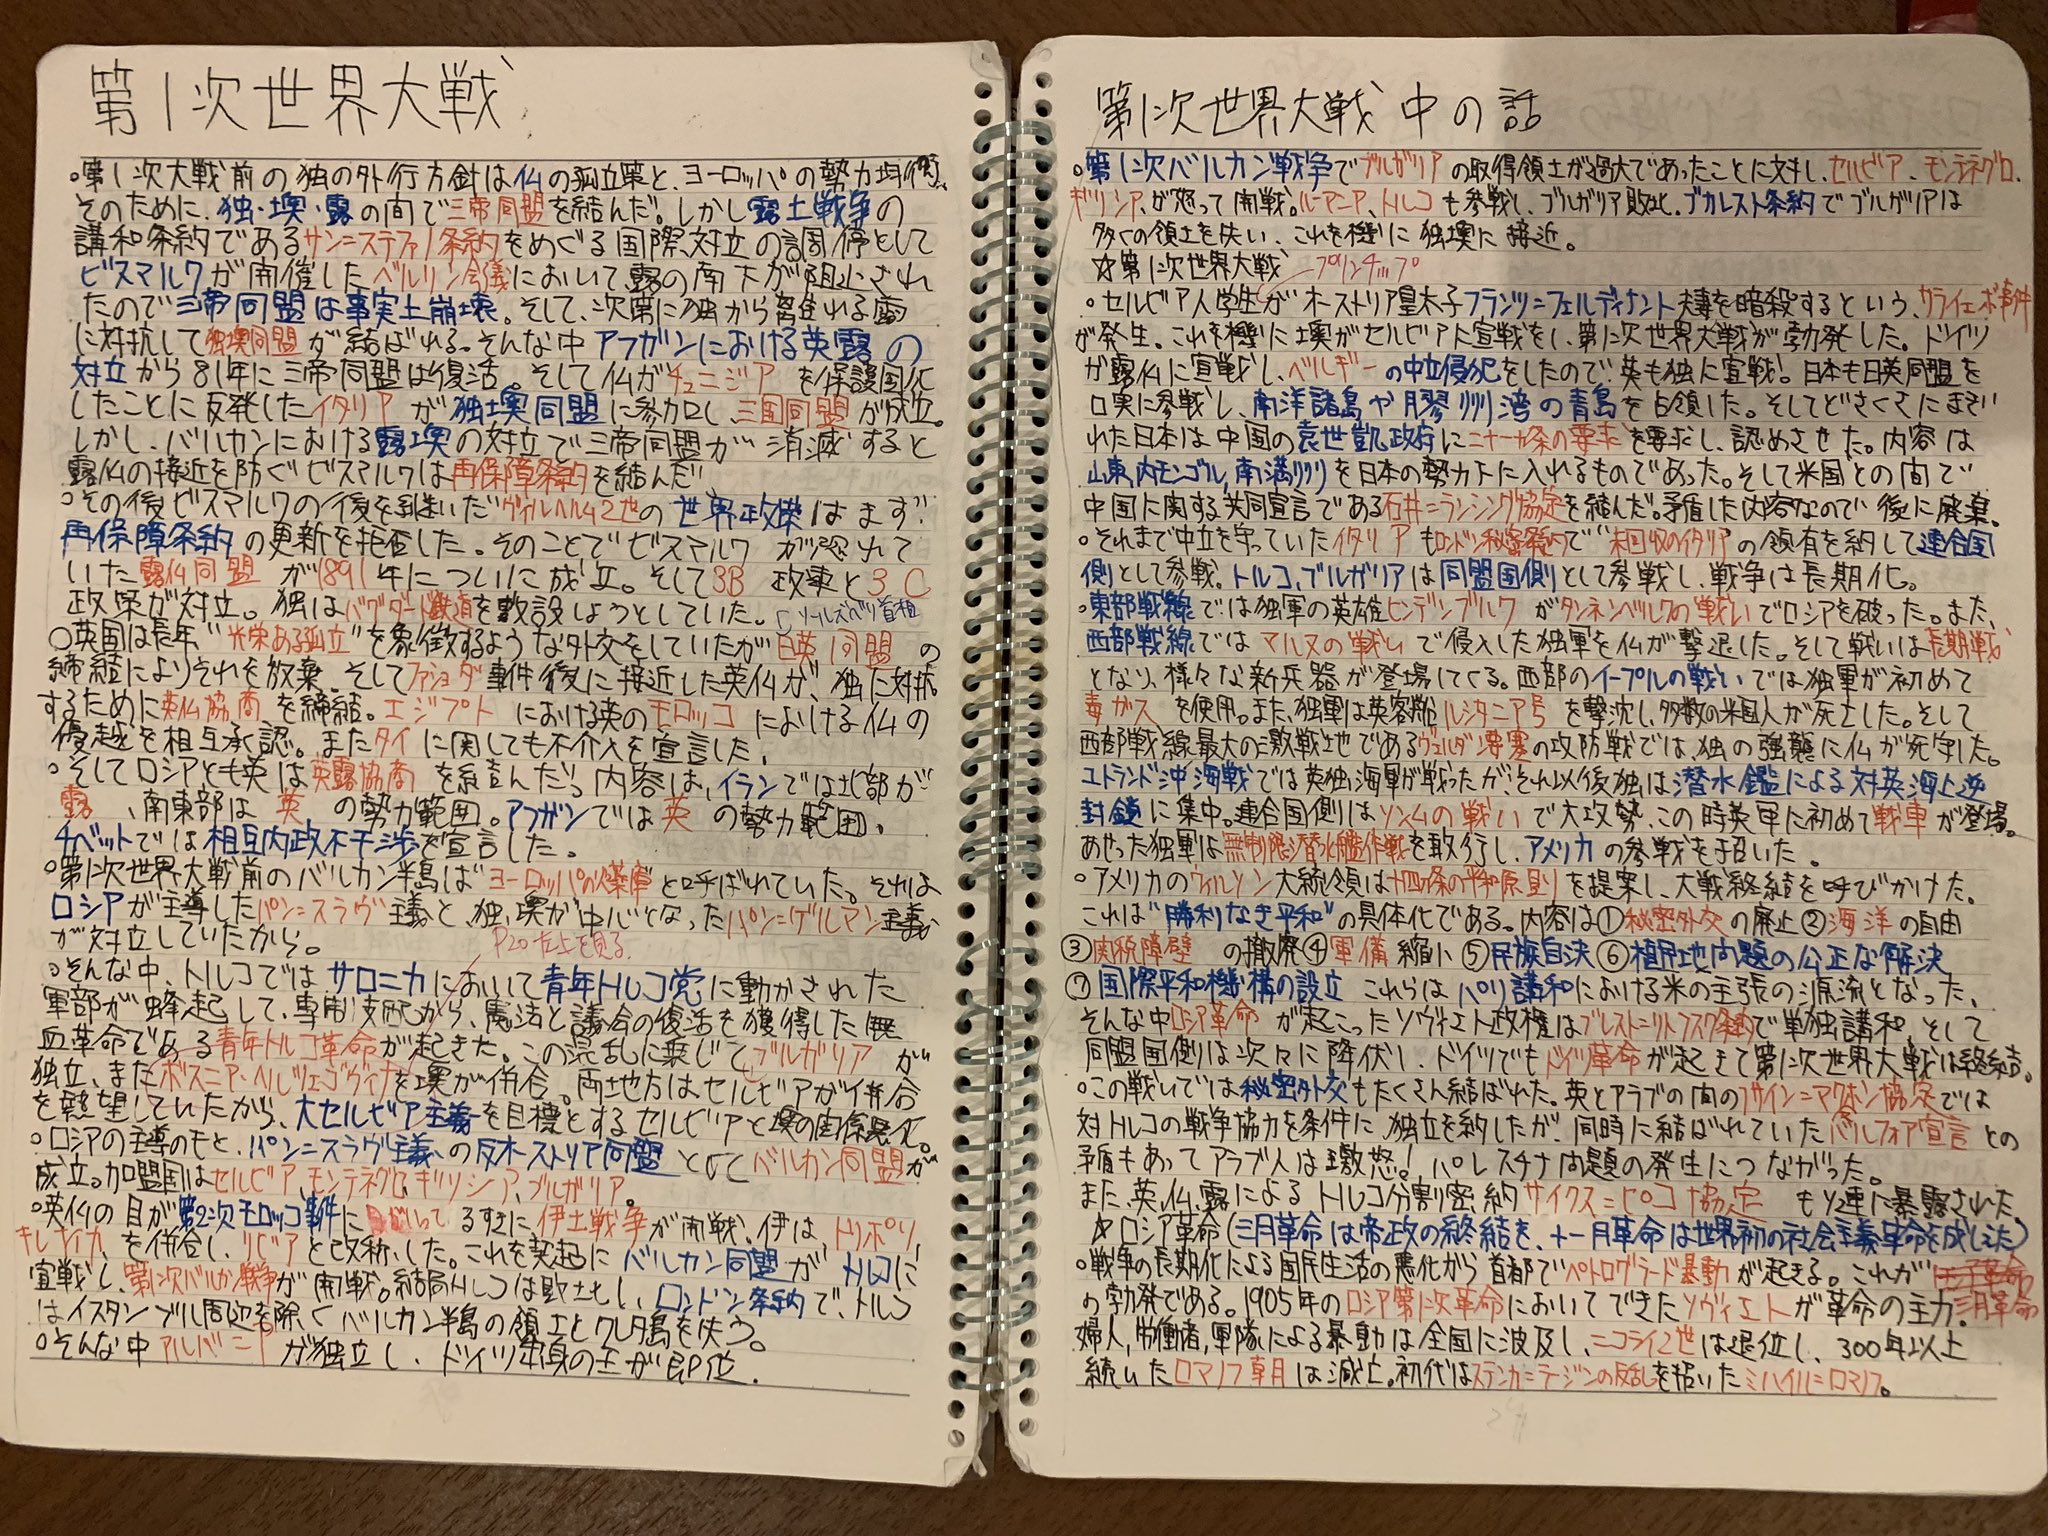 第1次世界大戦
○第1次大戦前の独の外行方針は仏の孤立策と、ヨーロッパの勢力均衡。
そのために、独・墺・露の間で三帝同盟を結んだ。しかし露土戦争の
講和条約であるサン=ステファノ条約をめぐる国際対立の調停として
ビスマルクが開催したベルリン会議において露の南下が阻止され
たので三帝同盟は事実上崩壊。そして、次第に独から離れる露
に対抗して独墺同盟が結ばれる。そんな中アフガンにおける英露の
対立から81年に三帝同盟は復活。そして仏がチュニジアを保護国化
したことに反発したイタリアが独墺同盟に参加し、三国同盟が成立。
しかし、バルカンにおける露墺の対立で三帝同盟が消滅すると
露仏の接近を防ぐビスマルクは再保障条約を結んだ。
○その後ビスマルクの後を継いだヴィルヘルム2世の世界政策はまず
再保障条約の更新を拒否した。そのことでビスマルクが恐れて
いた露仏同盟が1891年についに成立。そして3B政策と3C
政策が対立。独はバグダード鉄道を敷設しようとしていた。
ソールズベリ首相
○英国は長年“光栄ある孤立”を象徴するような外交をしていたが日英同盟の
締結によりそれを放棄。そしてファショダ事件後に接近した英仏が、独に対抗
するために英仏協商を締結。エジプトにおける英のモロッコにおける仏の
優越を相互承認。またタイに関しても不介入を宣言した。
○そしてロシアとも英は英露協商を結んだ。内容は、イランでは北部が
露、南東部は英の勢力範囲。アフガンでは英の勢力範囲、
チベットでは相互内政不干渉を宣言した。
○第1次世界大戦前のバルカン半島は“ヨーロッパの火薬庫”と呼ばれていた。それは
ロシアが主導したパン=スラヴ主義と、独、墺が中心となったパン=ゲルマン主義
が対立していたから。
P20左上を見る
○そんな中、トルコではサロニカにおいて青年トルコ党に動かされた
軍部が蜂起して、専制支配から、憲法と議会の復活を獲得した無
血革命である青年トルコ革命が起きた。この混乱に乗じてブルガリアが
独立、またボスニア・ヘルツェゴヴィナを墺が併合。両地方はセルビアが併合
を熱望していたから、大セルビア主義を目標とするセルビアと墺の関係悪化。
○ロシアの主導のもと、パン=スラヴ主義の反オーストリア同盟としてバルカン同盟が
成立。加盟国はセルビア、モンテネグロ、ギリシア、ブルガリア。
○英仏の目が第2次モロッコ事件に向かってるすきに伊土戦争が開戦、伊は、トリポリ、
キレナイカを併合し、リビアと改称した。これを契起にバルカン同盟がトルコに
宣戦し、第1次バルカン戦争が開戦。結局トルコは敗北し、ロンドン条約で、トルコ
はイスタンブル周辺を除くバルカン半島の領土とクレタ島を失う。
○そんな中アルバニアが独立し、ドイツ出身の王が即位.
第1次世界大戦中の話
○第1次バルカン戦争でブルガリアの取得領土が過大であったことに対し、セルビア、モンテネグロ、
ギリシアが怒って開戦。ルーマニア、トルコも参戦し、ブルガリア敗北。ブカレスト条約でブルガリアは
多くの領土を失い、これを機に独墺に接近。
☆第1次世界大戦
プリンチップ
・セルビア人学生がオーストリア皇太子フランツ=フェルディナント夫妻を暗殺するという、サライェボ事件
が発生。これを機に墺がセルビアに宣戦をし、第1次世界大戦が勃発した。ドイツ
が露仏に宣戦し、ベルギーの中立侵犯をしたので英も独に宣戦。日本も日英同盟を
口実に参戦し、南洋諸島や膠州湾の青島を占領した。そしてどさくさにまぎ
れた日本は中国の袁世凱政府に二十一カ条の要求を要求し、認めさせた。内容は
山東、内モンゴル、南満州を日本の勢力下に入れるものであった。そして米国との間で
中国に関する共同宣言である石井=ランシング協定を結んだ。矛盾した内容なので後に廃棄。
○それまで中立を守っていたイタリアもロンドン秘密条約で“未回収のイタリア”の領有を約して連合国
側として参戦。トルコ、ブルガリアは同盟国側として参戦し、戦争は長期化。
○東部戦線では独軍の英雄ヒンデンブルクがタンネンベルクの戦いでロシアを破った。また、
西部戦線ではマルヌの戦いで侵入した独軍を仏が撃退した。そして戦いは長期戦
となり、様々な新兵器が登場してくる。西部のイープルの戦いでは独軍が初めて
毒ガスを使用。また、独軍は英客船ルシタニア号を撃沈し、多数の米国人が死亡した。そして
西部戦線最大の激戦地であるヴェルダン要塞の攻防戦では独の強襲に仏が死守した。
ユトランド沖海戦では英独海軍が戦ったが、それ以後独は潜水艦による対英海上逆
封鎖に集中。連合国側はソンムの戦いで大攻勢、この時英軍に初めて戦車が登場。
あせった独軍は無制限潜水艦作戦を敢行し、アメリカの参戦を招いた。
・アメリカのウィルソン大統領は十四カ条の平和原則を提案し、大戦終結を呼びかけた。
これは“勝利なき平和”の具体化である。内容は①秘密外交の廃止②海洋の自由
③関税障壁の撤廃④軍備縮小⑤民族自決⑥植民地問題の公正な解決
⑦国際平和機構の設立 これらはパリ講和における米の主張の源流となった、
そんな中ロシア革命が起こったソヴィエト政権はブレスト=リトフスク条約で単独講和、そして
同盟国側は次々に降伏し、ドイツでもドイツ革命が起きて第1次世界大戦は終結。
○この戦いでは秘密外交もたくさん結ばれた。英とアラブの間のフサイン=マクマホン協定では
対トルコの戦争協力を条件に独立を約したが、同時に結ばれていたバルフォア宣言との
矛盾もあってアラブ人は激怒!パレスチナ問題の発生につながった。
また、英、仏、露によるトルコ分割密約サイクス=ピコ協定もソ連に暴露された。
☆ロシア革命(三月革命は帝政の終結を、十一月革命は世界初の社会主義革命を成した)
○戦争の長期化による国民生活の悪化から首都でペトログラード暴動が起きる。これが三月革命
の勃発である。1905年のロシア第1次革命においてできたソヴィエトが革命の主力。
婦人、労働者、軍隊による暴動は全国に波及し、ニコライ2世は退位し、300年以上
続いたロマノフ朝は滅亡。初代はステンカ=ラージンの反乱を招いたミハイル=ロマノフ。